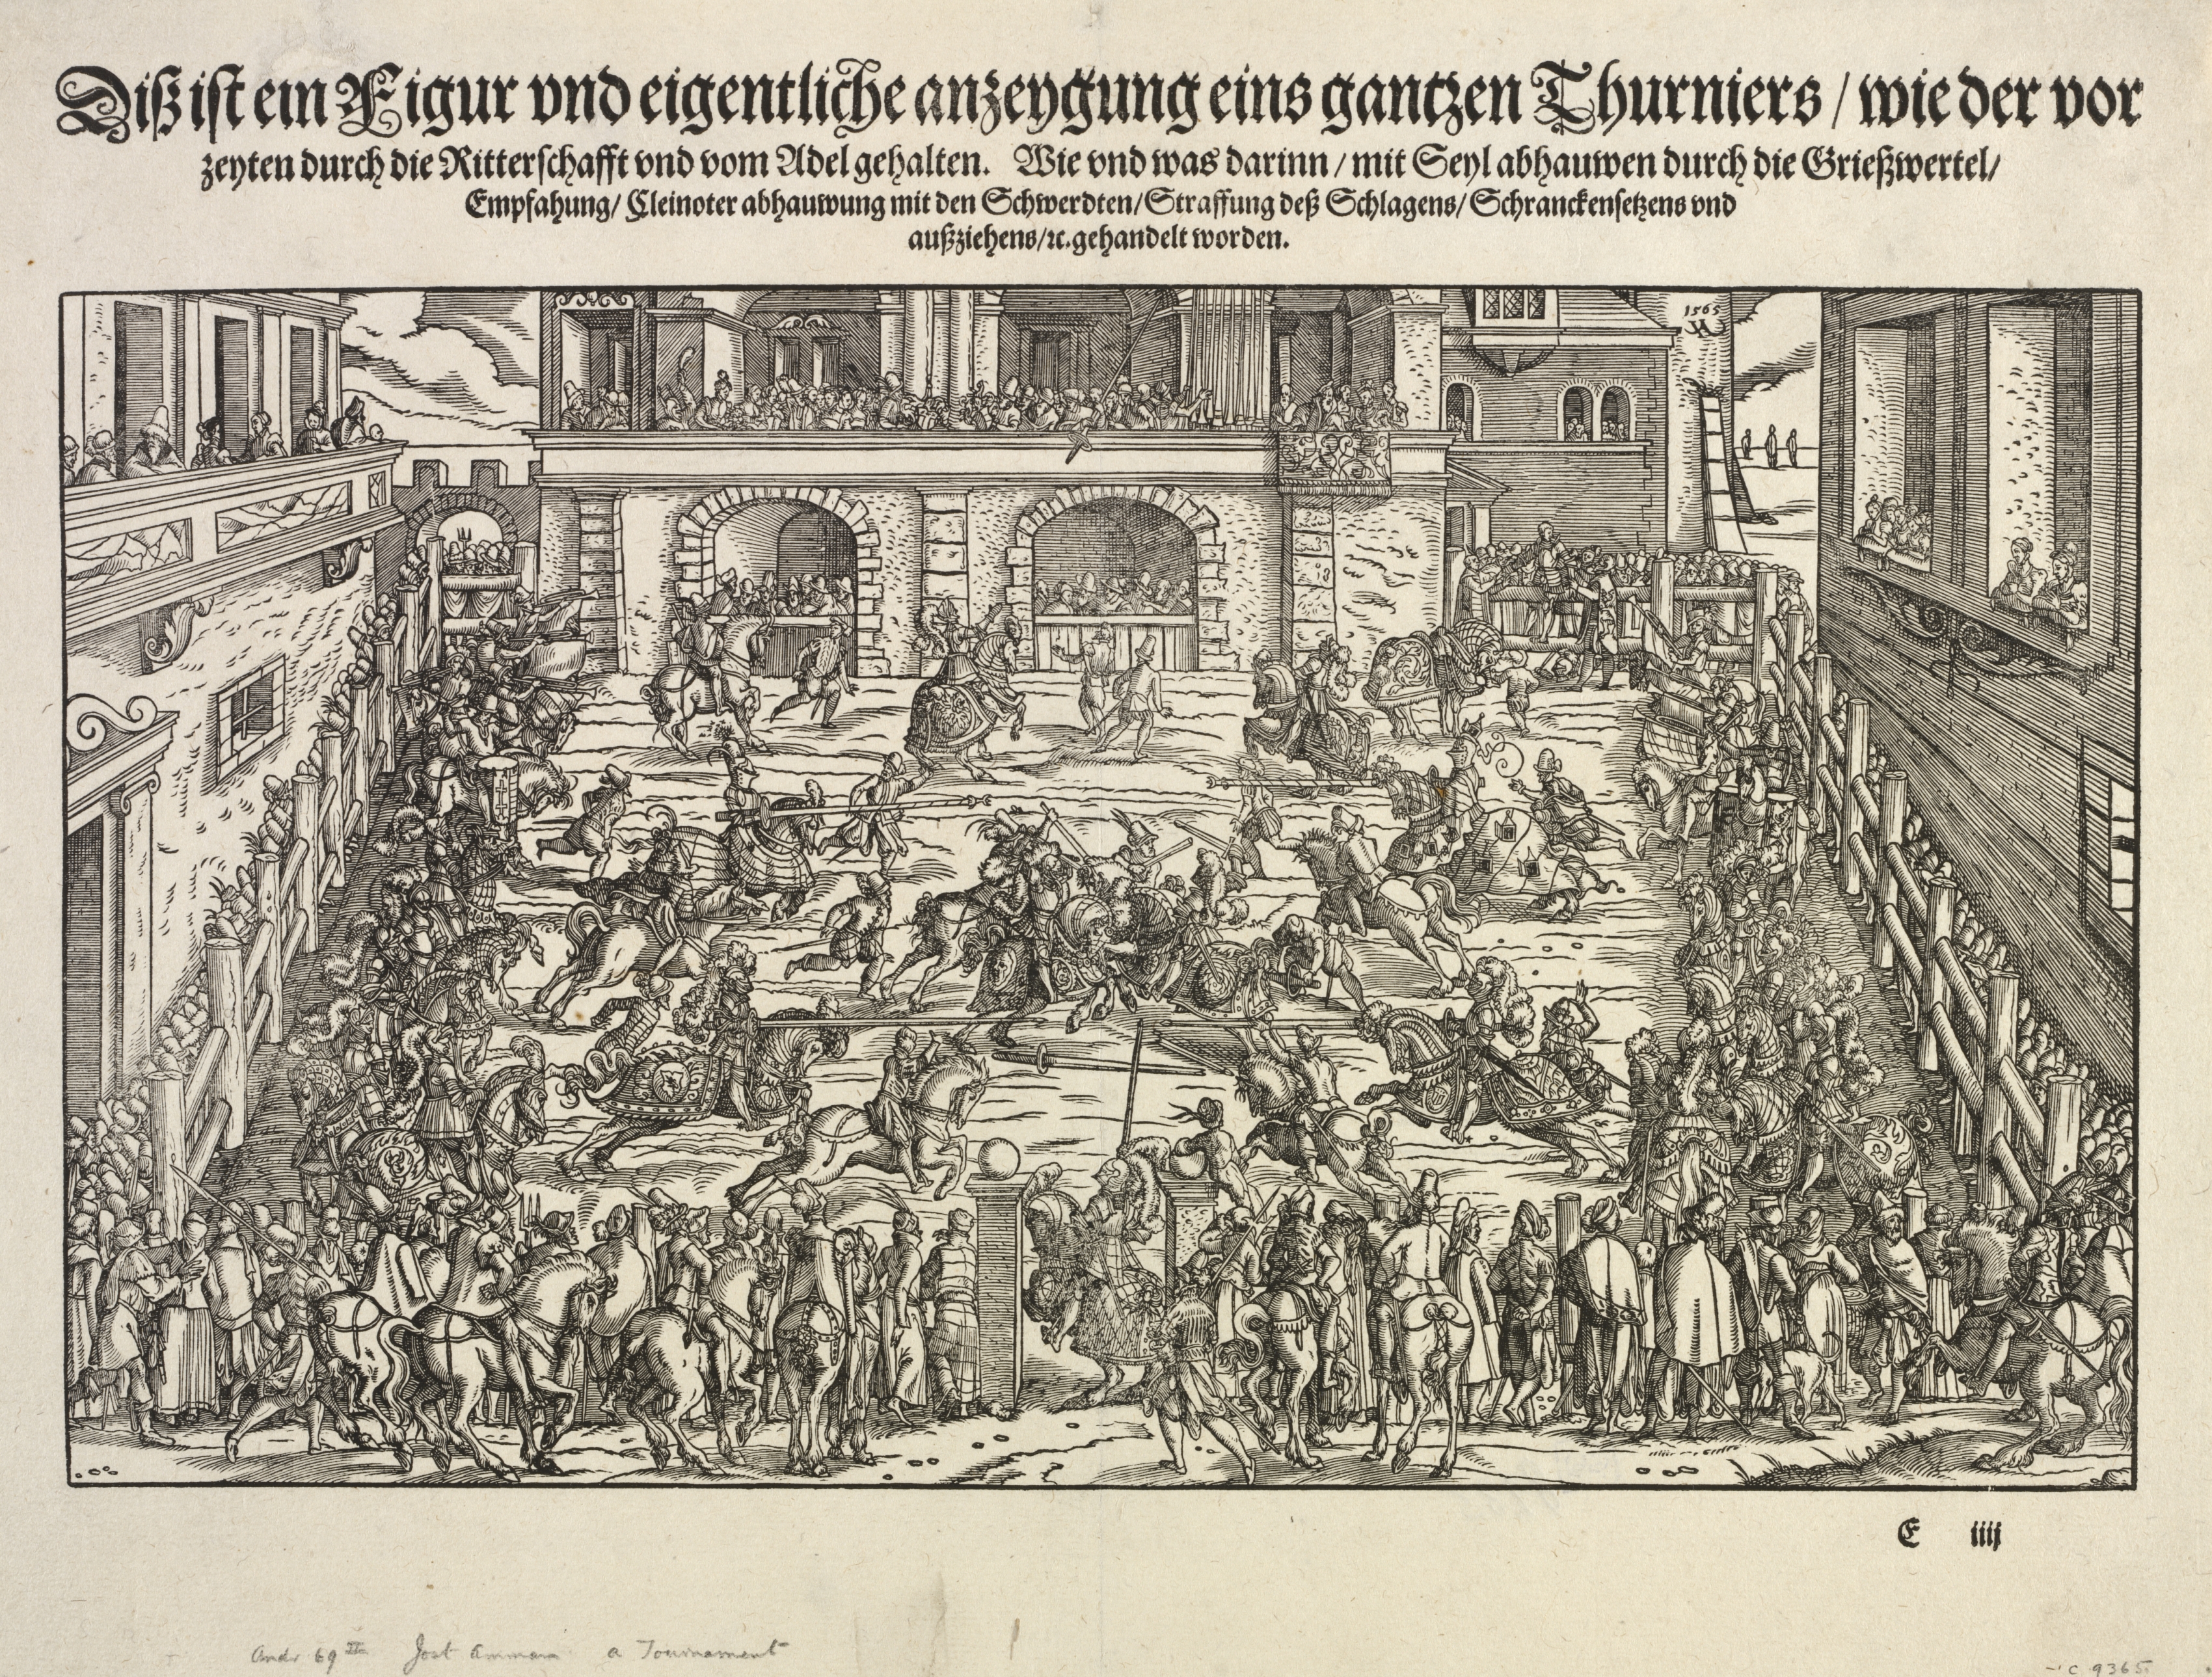 Diß iſt ein Figur vnd eigentliche anzeygung eins gantzen Thurniers / wie der vor
zeyten durch die Ritterſchafft vnd vom Adel gehalten. Wie vnd was darinn / mit Seyl abhauwen durch die Grießwertel /
Empfahung / Cleinoter abhauwung mit den Schwerdten / Straffung deß Schlagens / Schranckenſetzens vnd
außziehens / ꝛc. gehandelt worden.
1565
E iiij
Andr 69 II Jost Amman a Tournament
c 9365